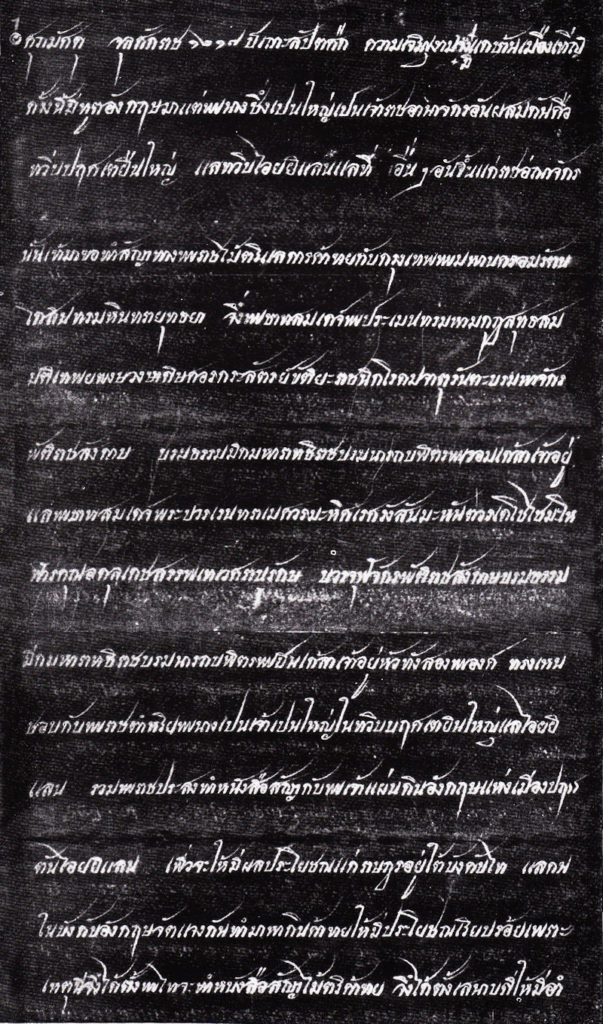 ศุภมัศดุ จุลศักราช ๑๒๑๗ ปีเถาะสัปตศก ความเจริญ เมือง
ครั้งนี้มีทูตอังกฤษมาแต่พระนางซึ่งเปนใหญ่เปนเจ้าราชอาณาจักรอันผสมกันคือ
ทวีปปฤศเตอินใหญ่ แลทวีปไอยยิแลนแลที่ อื่น ๆ อันขึ้นแก่ราชอาณาจักร
นั้นเข้ามาขอทำสัญาทางพระราชไม้ตรีแลการค้าขายกับกรุงเทพพระมหานครอมรรัตน
โกสินทรมหินทรายุทธยา จึ่งพระบาทสมเดจพระปรเมนทรมหามกุฏสุทธสม
มติเทพยพงษวงษาดิศวรกระษัตริย์ขัติยะราชนิกโรดม จาตุรันตะบรมมหาจักร
พัติราชสังกาษ บรมธรรมิกมหาราชาธิราชบรมนารถบพิตรพระจอมเกล้าเจ้าอยู่
แลพระบาทสมเดจพระปวเรนทราเมศวรมหิศเรศรังสรร
บวรจุฬจักรพัติราชสังกาษบวรธรรม
มิกมหาราชาธิราชบรมนารถบพิตรพระปิ่นเกล้าเจ้าอยู่หัวทั้งสองพระองค์ ทรงเหน
ชอบกับพระราชดำริหพระนางเปนเจ้าเปนใหญ่ในทวีปบฤศเตอินใหญ่แลไอยยิ
แลน รวมพระราชประสงทำหนังสือสัญากับพระเจ้าแผ่นดินอังกฤษแห่งเมืองปฤต
ตันไอยยิแลน เพื่อจะให้มีผลประโยชณแก่ราษฎรอยู่ใต้บังคับไท แลคน
ในบังคับอังกฤษจัดแจงกันทำมาหากินค้าขายให้มีประโยชณเรียบร้อยเพราะ
เหตุนี้จึงได้ตั้งพระไทยจะทำหนังสือสัญาไม้ตรีค้าขาย จึงได้ตั้งเสนาบดีให้มีอำ